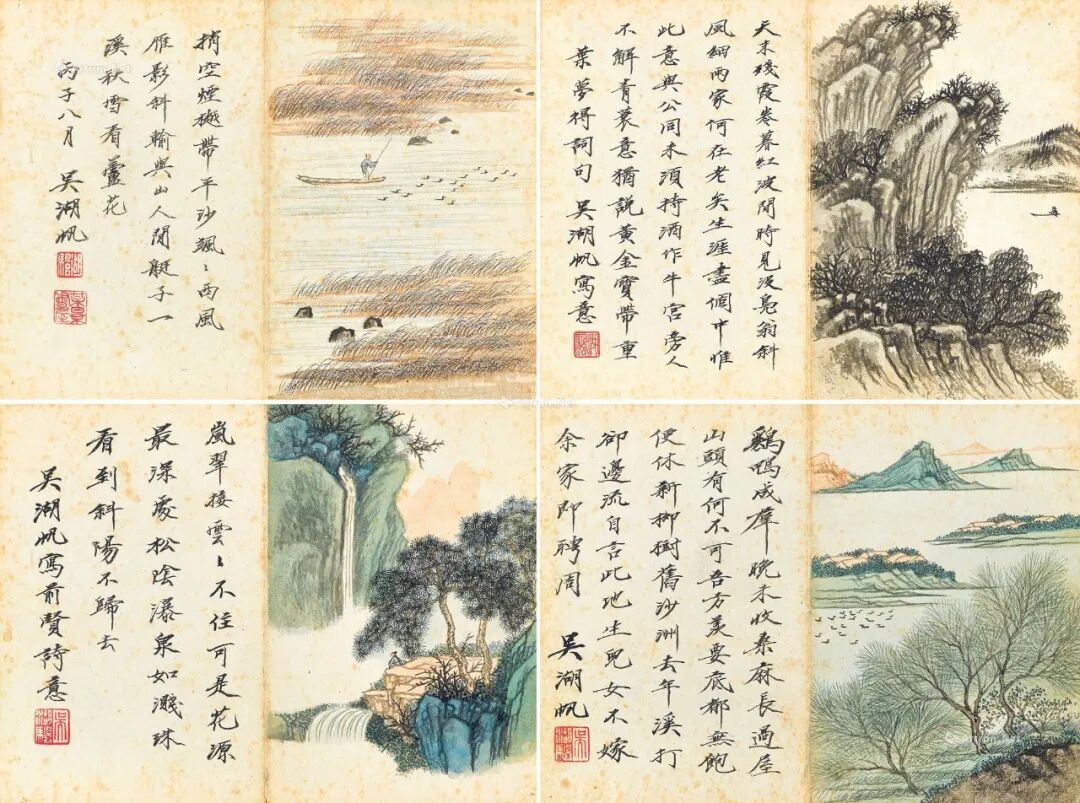 捎空煙帶平沙颯〻西風
雁影斜輸與山人閒艇子一
溪秋雪看蘆花
丙子八月 吳湖帆
天末殘霞卷暮紅波間時見沒鳧翁斜
風細雨家何在老矣生涯盡個中惟
此意與公同未須持酒作牛宮旁人
不解青蓑意猶說黃金寶帶重
葉夢得詞句 吳湖帆寫意
嵐翠接雲〻不住可是花源
最深處松陰瀑泉如濺珠
看到斜陽不歸去
吳湖帆寫前賢詩意
鷄鴨成群晚未收桑麻長過屋
山頭有何不可吾方羨要底都無飽
便休新柳樹舊沙洲去年溪打
卻邊流自言此地生兒女不嫁
余家即聘周 吳湖帆